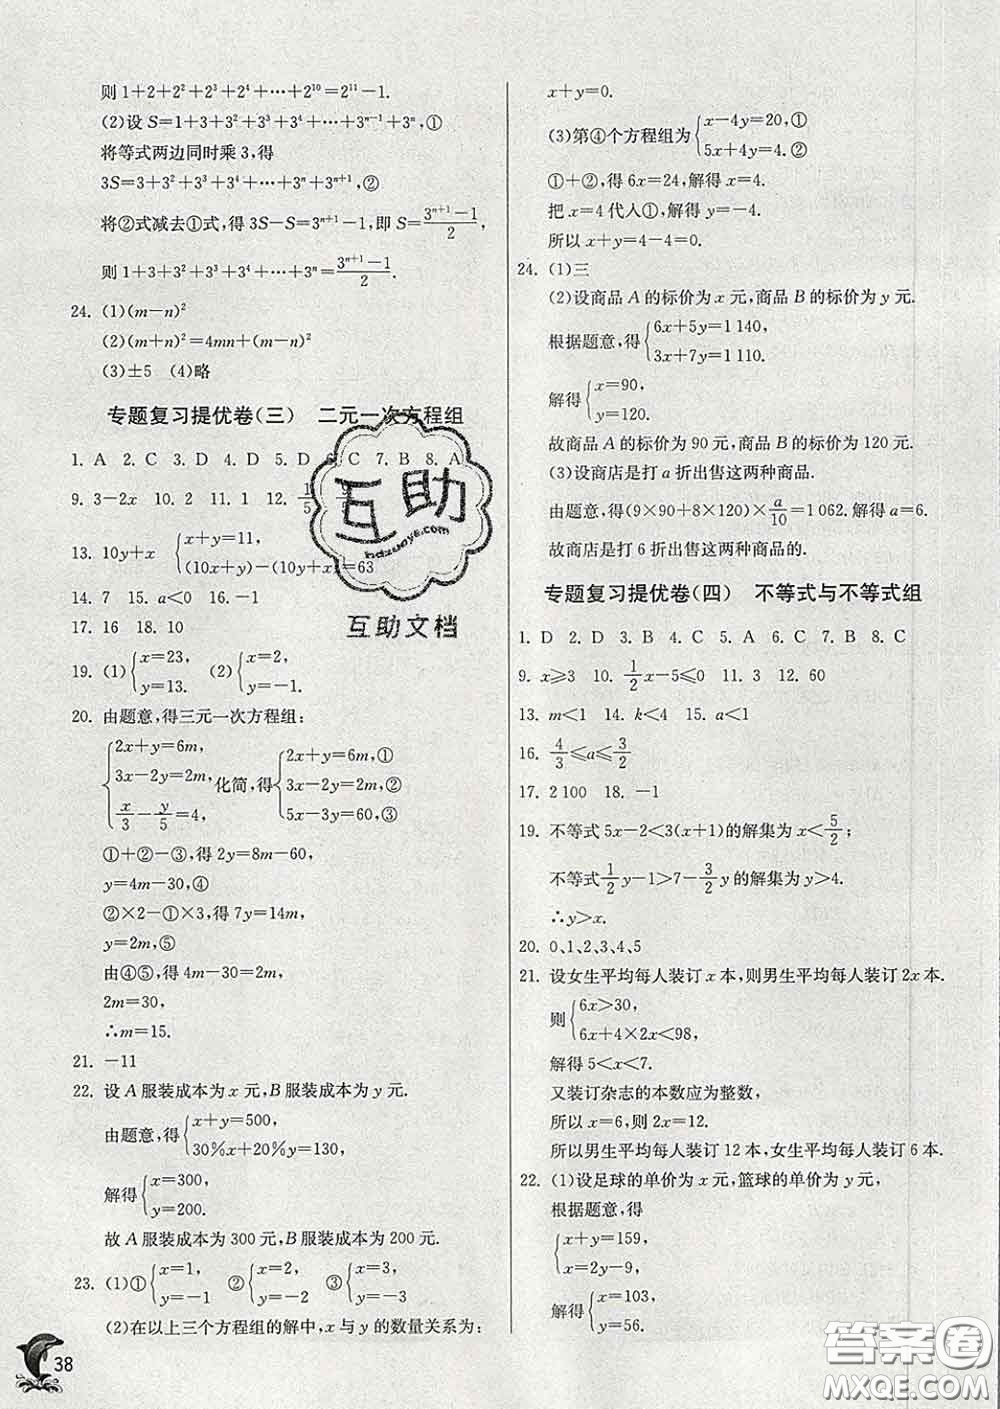 则 1+2+2²+2³+2⁴+…+2¹⁰=2¹¹-1.
(2)设 S=1+3+3²+3³+3⁴+…+3ⁿ⁻¹+3ⁿ,①
将等式两边同时乘 3,得
3S=3+3²+3³+3⁴+…+3ⁿ+3ⁿ⁺¹,②
将②式减去①式,得 3S-S=3ⁿ⁺¹-1,即 S=(3ⁿ⁺¹-1)/2,
则 1+3+3²+3³+3⁴+…+3ⁿ=(3ⁿ⁺¹-1)/2.
24. (1)(m-n)²
(2)(m+n)²=4mn+(m-n)²
(3)±5 (4)略
专题复习提优卷(三) 二元一次方程组
1. A 2. C 3. D 4. D 5. D 6. C 7. B 8. A
9. 3-2x 10. 2 11. 1 12. 1/5
13. 10y+x {x+y=11,
(10x+y)-(10y+x)=63
14. 7 15. a<0 16. -1
17. 16 18. 10
19. (1){x=23, y=13. (2){x=2, y=-1.
20. 由题意,得三元一次方程组:
{2x+y=6m, 3x-2y=2m, x/3-y/5=4, 化简,得{2x+y=6m,① 3x-2y=2m,② 5x-3y=60,③
①+②-③,得 2y=8m-60,
y=4m-30,④
②×2-①×3,得 7y=14m,
y=2m,⑤
由④⑤,得 4m-30=2m,
2m=30,
∴m=15.
21. -11
22. 设 A 服装成本为 x 元,B 服装成本为 y 元.
由题意,得{x+y=500, 30%x+20%y=130,
解得{x=300, y=200.
故 A 服装成本为 300 元,B 服装成本为 200 元.
23. (1)①{x=1, y=-1 ②{x=2, y=-2 ③{x=3, y=-3
(2)在以上三个方程组的解中,x 与 y 的数量关系为:
38
x+y=0.
(3)第④个方程组为{x-4y=20,① 5x+4y=4.②
①+②,得 6x=24,解得 x=4.
把 x=4 代人①,解得 y=-4.
所以 x+y=4-4=0.
24. (1)三
(2)设商品 A 的标价为 x 元,商品 B 的标价为 y 元.
根据题意,得{6x+5y=1 140, 3x+7y=1 110.
解得{x=90, y=120.
故商品 A 的标价为 90 元,商品 B 的标价为 120 元.
(3)设商店是打 a 折出售这两种商品.
由题意,得(9×90+8×120)×a/10=1 062.解得 a=6.
故商店是打 6 折出售这两种商品的.
专题复习提优卷(四) 不等式与不等式组
1. D 2. D 3. B 4. C 5. A 6. C 7. B 8. C
9. x≥3 10. 1/2x-5≤0 11. 3 12. 60
13. m<1 14. k<4 15. a<1
16. 4/3≤a≤3/2
17. 2 100 18. -1
19. 不等式 5x-2<3(x+1)的解集为 x<5/2;
不等式1/2y-1>7-3/2y 的解集为 y>4.
∴y>x.
20. 0、1、2、3、4、5
21. 设女生平均每人装订 x 本,则男生平均每人装订 2x 本.
则{6x>30, 6x+4×2x<98,
解得 5<x<7.
又装订杂志的本数应为整数,
所以 x=6,则 2x=12.
所以男生平均每人装订 12 本,女生平均每人装订 6 本.
22. (1)设足球的单价为 x 元,篮球的单价为 y 元,
根据题意,得
{x+y=159, x=2y-9,
解得{x=103, y=56.
互助
hdzuoye.com
互助文档
答案圈
MXQE.COM